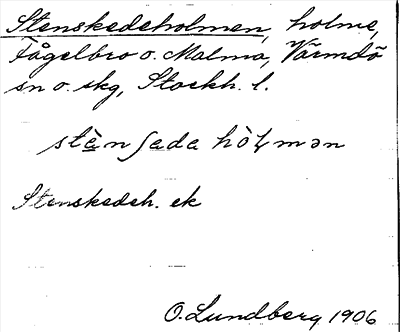 Stenskedeholmen, holme,
Fågelbro o. Malma, Värmdö
sn o. skg, Stockh. l.
stè̱nʃada hòɫmən
Stenskedeh. ek
O. Lundberg 1906